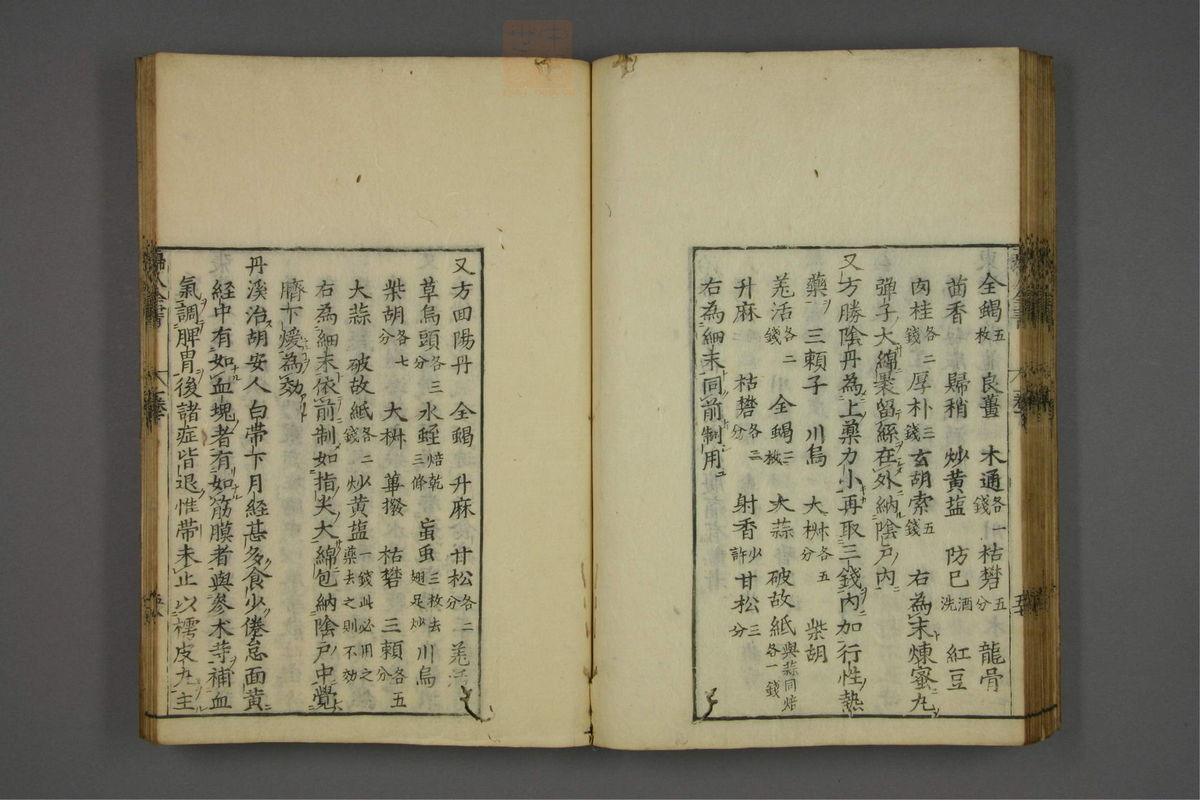 全蝎五枚 良薑 木通各一錢 枯礬五分 龍骨
茴香 歸稍 炒黃盐 防巳酒洗 紅豆
肉桂各二錢 厚朴三錢 玄胡索五錢 右為末煉蜜丸
彈子大綿裹留絲在外納陰戸内
又方勝陰丹為上藥力小再取三錢內加行性熱
藥 三頼子 川烏 大椒各五分 柴胡
羗活各二錢 全蝎三枚 大蒜 破故紙與蒜同焙各一錢
升麻 枯礬各二分 射香少許 甘松三分
右為細末同前制用
又方回陽丹 全蝎 升麻 甘松各二分 羗活
草烏頭各三分 水蛭焙乾三條 䖟虫三枚去翅足炒 川烏
柴胡各七分 大椒 蓽撥 枯礬 三頼各五分
大蒜 破故紙各二錢 炒黃盐一錢此必用之藥去之則不効
右為細末依前制如指尖大綿包納陰戸中覺
臍下煖為効
丹溪治胡安人白帶下月經甚多食少倦怠面黃
經中有如血塊者有如筋膜者與參术等補血
氣調脾胃後諸症皆退惟帶未止以樗皮丸主